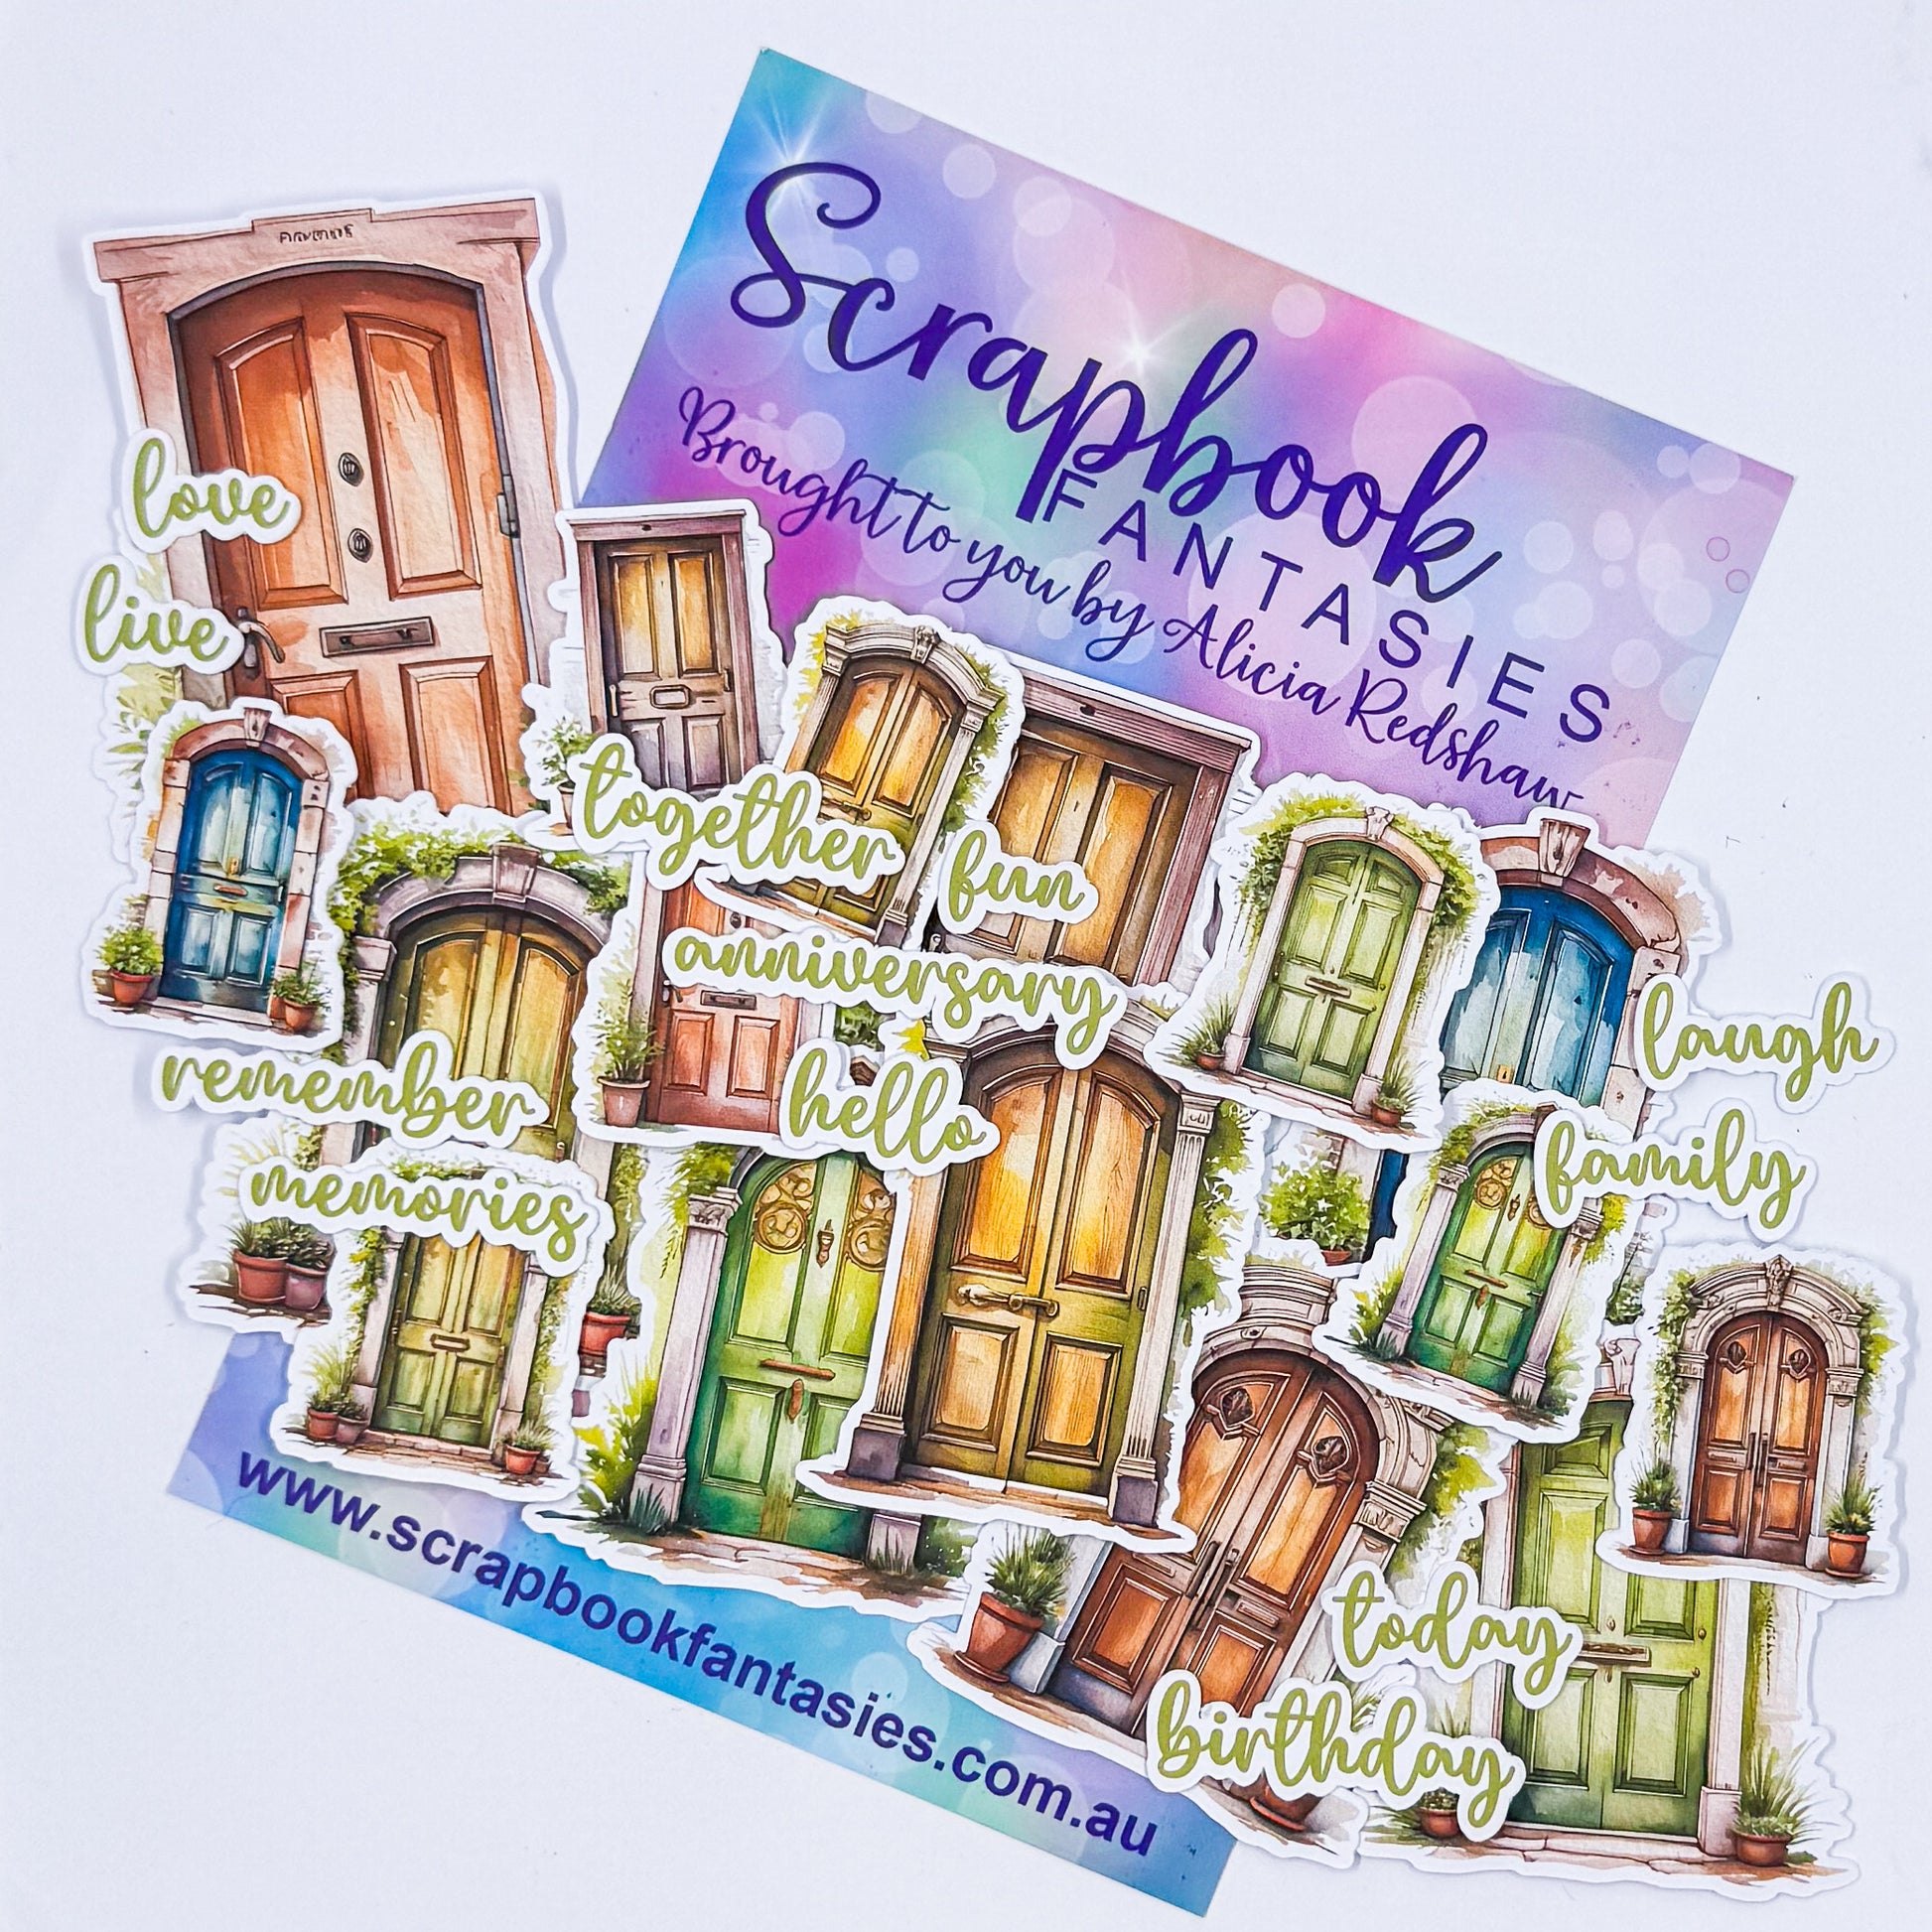 Scrapbook
FANTASIES
Brought to you by Alicia Redshaw
love
live
together
fun
anniversary
laugh
remember
hello
family
memories
today
birthday
www.scrapbookfantasies.com.au